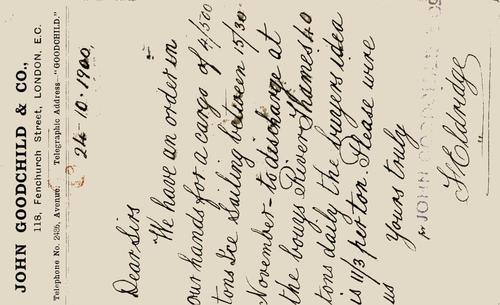 JOHN GOODCHILD & CO.,
118, Fenchurch Street, LONDON, E.C.
Telephone No. 2459, Avenue. Telegraphic Address—"GOODCHILD."
24-10-1900
Dear Sirs
We have an order in
our hands for a cargo of 4/500
tons Ice Sailing between 15/30
November - to discharge at
the bouys River Thames 40
tons daily the buyers idea
is 11/3 per ton. Please wire
us
Yours truly
for JOHN
F Eldridge